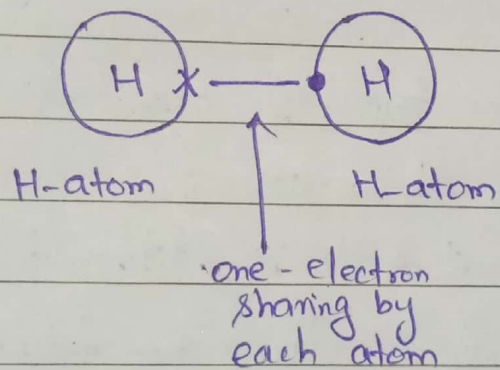 H H
H-atom H-atom
one-electron
sharing by
each atom